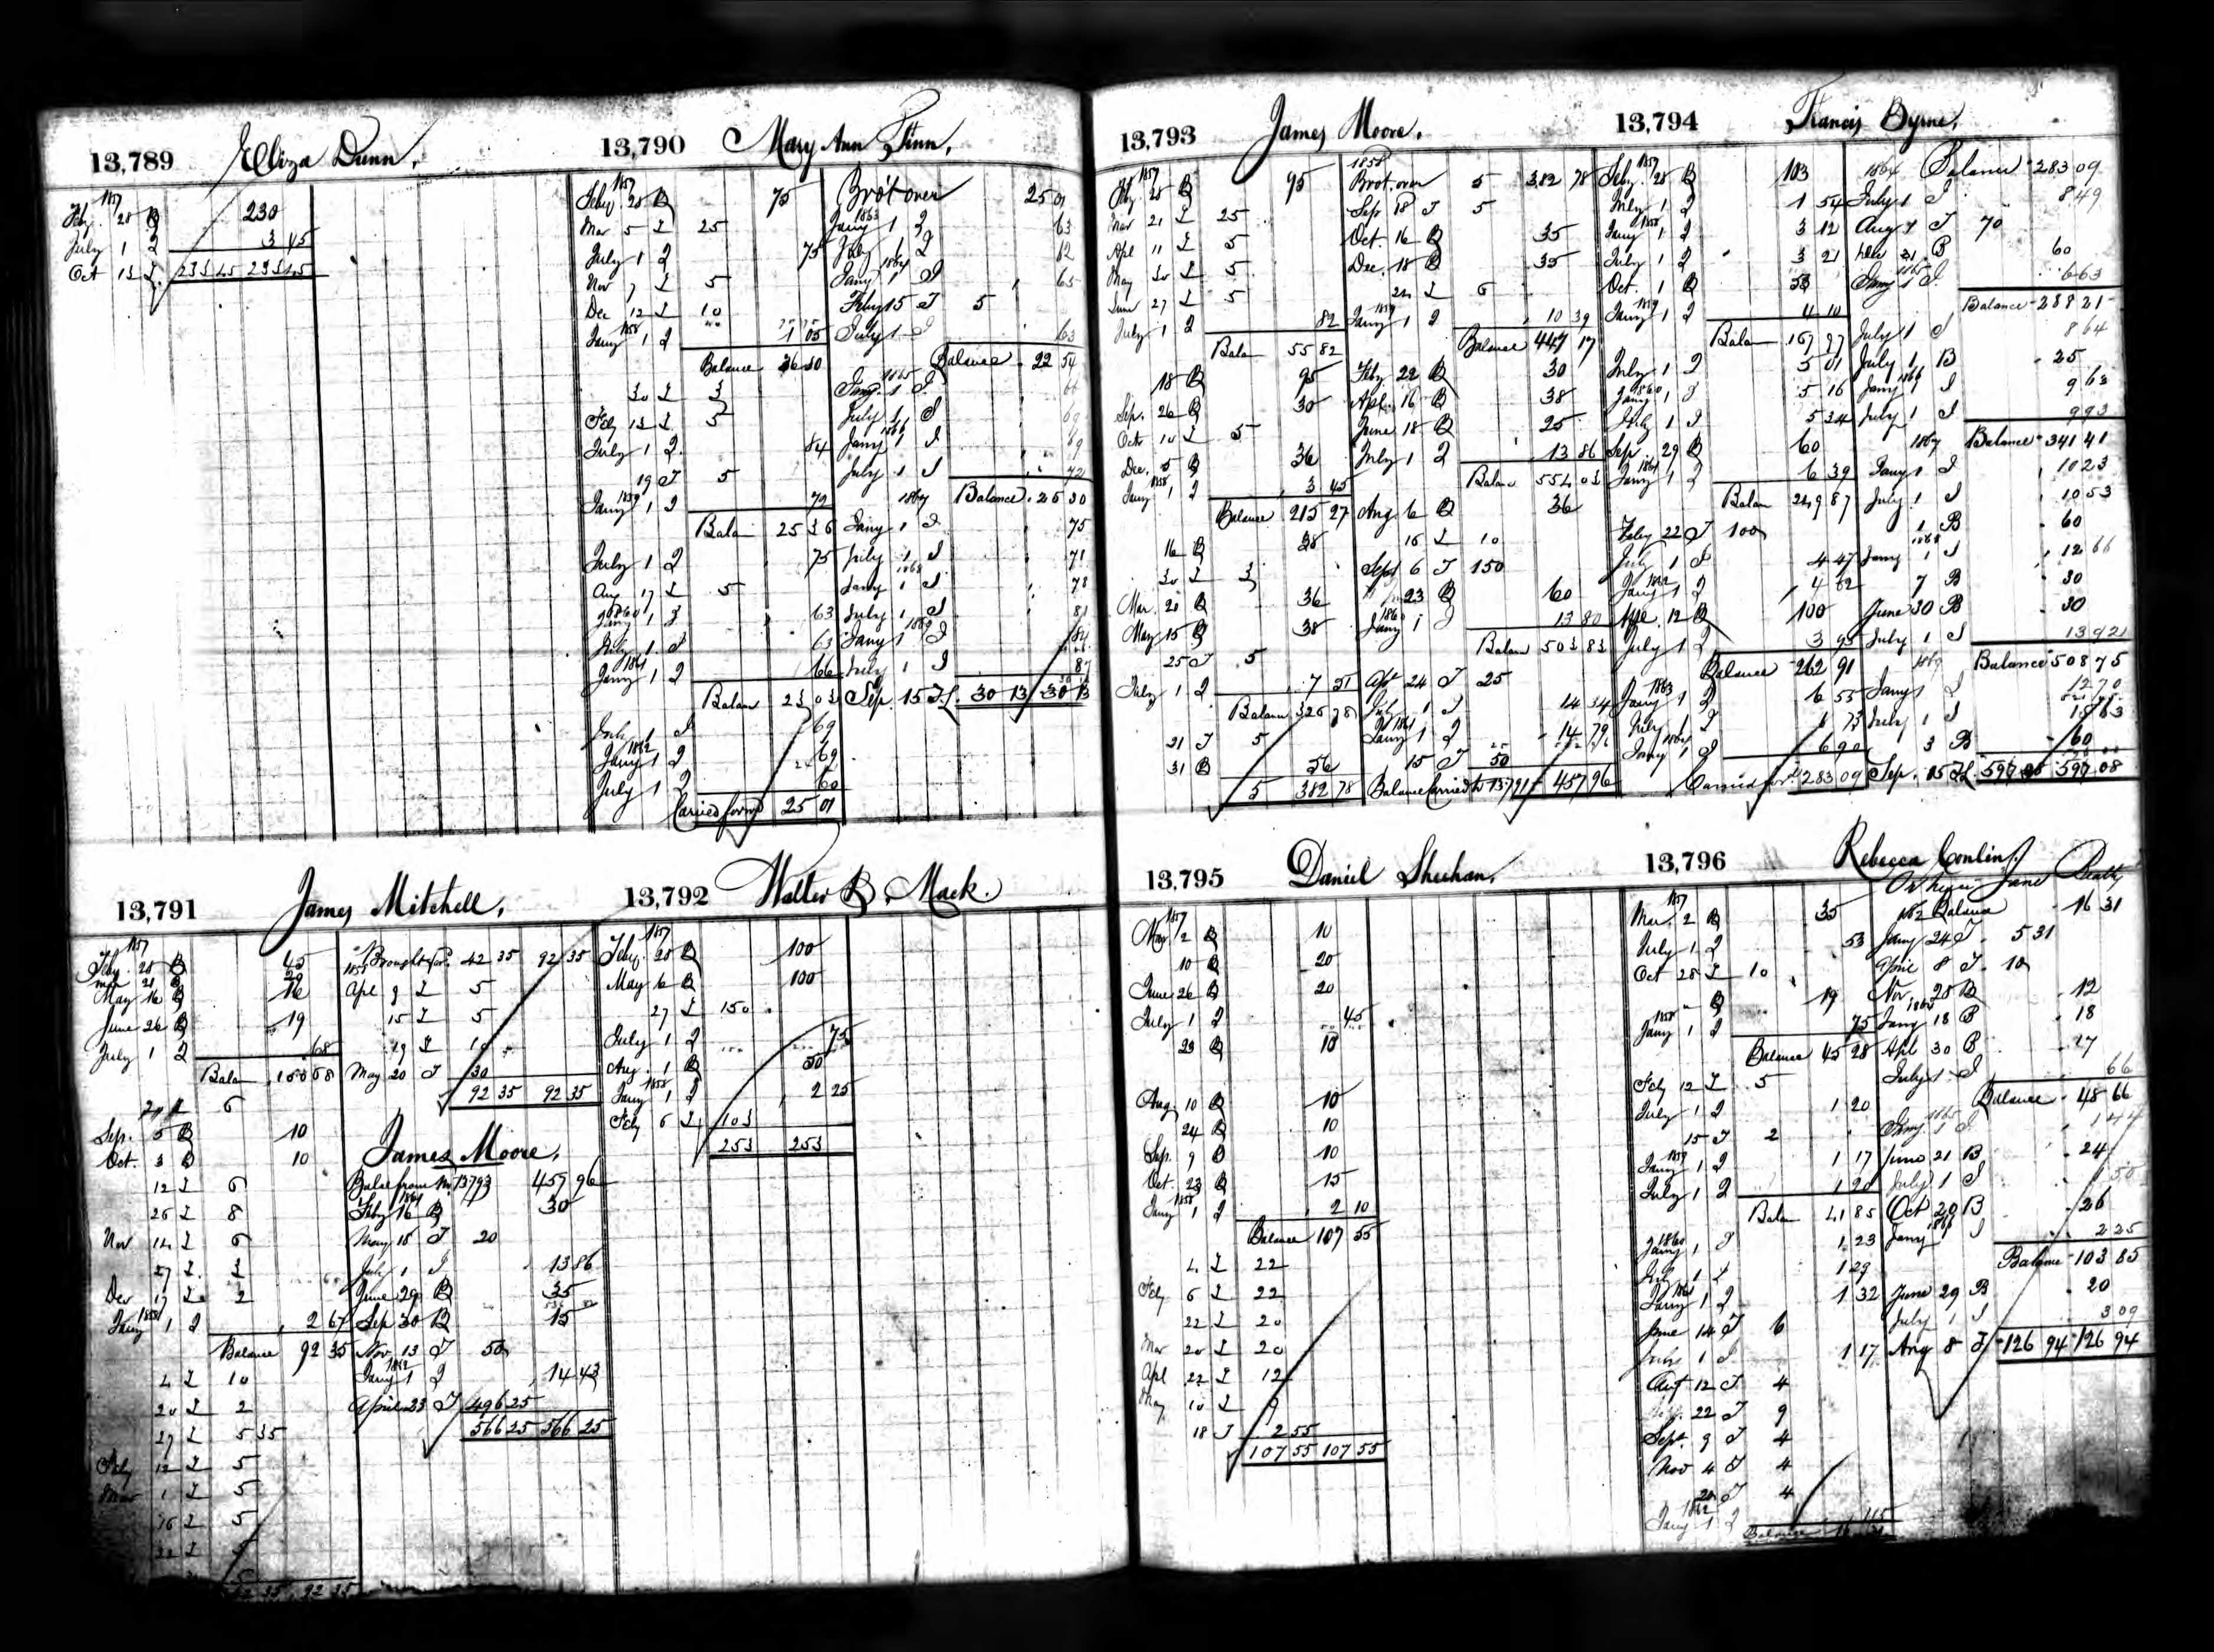 13,789 Eliza Dunn,
1857
Feby. 28 B 230
July 1 I 3 45
Oct 13 L 233 45 233 45
13,790 Mary Ann Finn,
1857
Feby 28 B 75
Mar 5 L 25
July 1 I 75
Nov 7 L 5
Dec 12 L 10
1858
Jany 1 I 1 05
Balance 36 80
30 L 3
Feby 13 L 5
July 1 I 84
19 T 5
1859
Jany 1 I 72
Balan 25 36
July 1 I 75
Aug 17 L 5
1860
Jany 1 I 63
July 1 I 63
1861
Jany 1 I 66
Balan 23 03
July 1 I 69
1862
Jany 1 I 69
July 1 I 60
Carried forwd 25 01
Brot over 25 01
1863
Jany 1 I 63
July 1 I 62
1864
Jany 1 I 65
Feby 15 T 5
July 1 I 63
Balance 22 54
1865
Jany 1 I 66
July 1 I 69
1866
Jany 1 I 69
July 1 I 72
1867 Balance 25 30
Jany 1 I 75
July 1 I 71
1868
Jany 1 I 78
July 1 I 81
1869
Jany 1 I 84
July 1 I 87
Sep. 15 T 30 13 30 13
13,791 James Mitchell,
1857
Feby. 28 B 45
Mar 21 B 20
May 16 B 16
June 26 B 19
July 1 I 68
Balan 100 68
6
Sep. 5 B 10
Oct. 3 B 10
12 L 6
26 L 8
Nov 14 L 6
27 L 3
Dec 17 L 2
1858
Jany 1 I 2 67
Balance 92 35
4 L 10
20 L 2
27 L 5 35
Feby 12 L 5
Mar 1 L 5
16 L 5
22 L 5
92 35
Brought for. 42 35 92 35
1858
Apl 9 L 5
15 L 5
19 L 10
May 20 T 30
92 35 92 35
James Moore,
Balce from No. 13793 457 96
1861
Feby 16 B 30
May 15 T 20
July 1 I 13 86
June 29 B 35
Sep 30 B 15
Nov. 13 T 50
1862
Jany 1 I 14 43
April 23 T 496 25
566 25 566 25
13,792 Walter B. Mack.
1857
Feby. 28 B 100
May 6 B 100
27 L 150
July 1 I 75
Aug. 1 B 50
1858
Jany 1 I 2 25
Feby 6 L 103
253 253
13,793 James Moore.
1857
Feby 28 B 95
Mar 21 L 25
Apl 11 L 5
May 30 L 5
June 27 L 5
July 1 I 82
Balan 55 82
18 B 95
Sep. 26 B 30
Oct 10 L 5
Dec. 5 B 36
1858
Jany 1 I 3 45
Balance 215 27
16 B 38
30 L 3
Mar. 20 B 36
May 15 B 38
25 T 5
July 1 I 7 51
Balan 326 78
21 T 5
31 B 56
5 382 78
1858
Brot. over 5 382 78
Sep 18 T 5
Oct. 16 B 35
Dec. 18 B 35
24 L 6
1859
Jany 1 I 10 39
Balance 447 17
Feby 22 B 30
Apl. 16 B 38
June 18 B 25
July 1 I 13 86
Balan 554 03
Aug 6 B 36
16 L 10
Sept 6 T 150
23 B 60
1860
Jany 1 I 13 80
Balan 503 83
Apl 24 T 25
July 1 I 14 34
1861
Jany 1 I 14 79
15 T 50
Balance Carried to 13791 457 96
13,794 Francis Byrne,
1857
Feby. 28 B 103
July 1 I 1 54
1858
Jany 1 I 3 12
July 1 I 3 21
Oct. 1 B 53
1859
Jany 1 I 4 10
Balan 167 97
July 1 I 5 01
1860
Jany 1 I 5 16
July 1 I 5 34
Sep. 29 B 60
1861
Jany 1 I 6 39
Balan 249 87
Feby 22 T 100
July 1 I 4 47
1862
Jany 1 I 4 62
Apl. 12 B 100
July 1 I 3 95
Balance 262 91
1863
Jany 1 I 6 55
July 1 I 6 73
1864
Jany 1 I 6 90
Carried for. 283 09
1864 Balance 283 09
July 1 I 8 49
Aug 9 T 70
Dec 21 B 60
1865
Jany 1 I 6 63
Balance 288 21
July 1 I 8 64
July 1 B 25
1866
Jany 1 I 9 63
July 1 I 9 93
1867 Balance 341 41
Jany 1 I 10 23
July 1 I 10 53
1 B 60
1868
Jany 1 I 12 66
7 B 30
June 30 B 30
July 1 I 13 92
1869 Balance 508 75
Jany 1 I 12 70
July 1 I 15 63
3 B 60
Sep. 15 T 597 08 597 08
13,795 Daniel Sheehan,
1857
Mar. 2 B 10
10 B 20
June 26 B 20
July 1 I 45
29 B 10
Aug 10 B 10
24 B 10
Sep. 9 B 10
Oct 23 B 15
1858
Jany 1 I 2 10
Balance 107 55
4 L 22
Feby 6 L 22
22 L 20
Mar 20 L 20
Apl 22 L 12
May 10 L 9
18 T 2 55
107 55 107 55
13,796 Rebecca Conlin,
Or her Jane Beatty
1857
Mar. 2 B 35
July 1 I 53
Oct 28 L 10
" B 19
1858
Jany 1 I 75
Balance 45 28
Feby 12 L 5
July 1 I 1 20
15 T 2
1859
Jany 1 I 1 17
July 1 I 1 20
Balan 41 85
1860
Jany 1 I 1 23
July 1 I 1 29
1861
Jany 1 I 1 32
June 14 T 6
July 1 I 1 17
Aug 12 T 4
22 T 9
Sept. 9 T 4
Nov 4 T 4
20 T 4
1862
Jany 1 I
Balance 16 31
1862 Balance 16 31
Jany 24 T 5 31
April 8 T 10
Nov 28 B 12
Jany 18 B 18
Apl 30 B 17
July 1 I 66
Balance 48 66
1865
Jany 1 I 1 44
June 21 B 24
July 1 I 1 50
Oct 20 B 26
1866
Jany 1 I 2 25
Balance 103 85
June 29 B 20
July 1 I 3 09
Aug 8 T 126 94 126 94